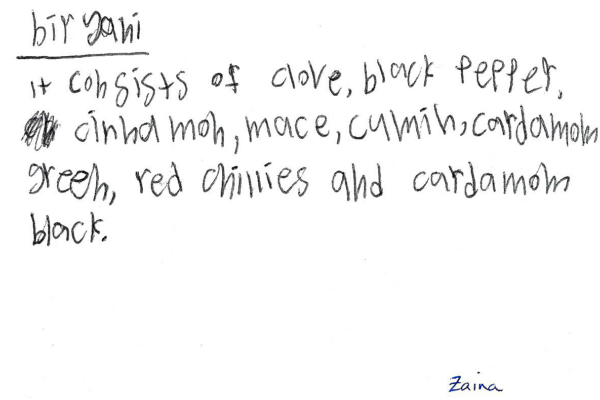 biryani
it consists of clove, black pepper,
cinnamon, mace, cumin, cardamom
green, red chillies and cardamom
black.
Zaina